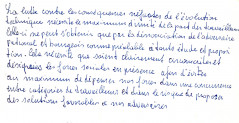 La lutte contre les conséquences néfastes de l'évolution
technique nécessite le maximum d'unité de la part des travailleurs.
Celle-ci ne peut s'obtenir que par la dénonciation de l'adversaire
patronal et bourgeois comme préalable à toute étude et proposi-
tion. Cela nécessite que soient clairement circonscrites et
désignées les forces sociales en présence afin d'éviter
au maximum de dépenser nos forces dans une concurrence
entre catégories de travailleurs et dans le risque de proposer
des solutions favorables à nos adversaires